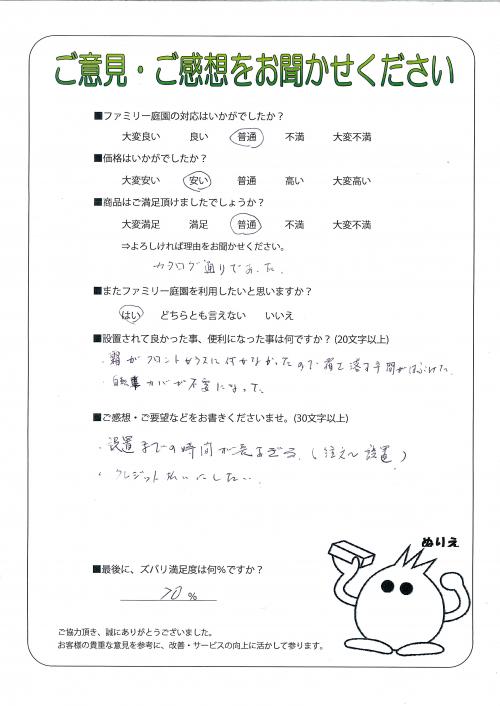 ご意見・ご感想をお聞かせください
■ファミリー庭園の対応はいかがでしたか？
大変良い 良い 普通 不満 大変不満
■価格はいかがでしたか？
大変安い 安い 普通 高い 大変高い
■商品はご満足頂けましたでしょうか？
大変満足 満足 普通 不満 大変不満
⇒よろしければ理由をお聞かせください。
カタログ通りであった.
■またファミリー庭園を利用したいと思いますか？
はい どちらとも言えない いいえ
■設置されて良かった事、便利になった事は何ですか？(20文字以上)
・霜がフロントガラスに付かなかったので霜を落す手間がはぶけた.
・自転車カバーが不要になった.
■ご感想・ご要望などをお書きくださいませ。(30文字以上)
・設置までの時間が長すぎる.(注文〜設置)
・クレジット払いにしたい.
ぬりえ
■最後に、ズバリ満足度は何％ですか？
70 %
ご協力頂き、誠にありがとうございました。
お客様の貴重な意見を参考に、改善・サービスの向上に活かして参ります。